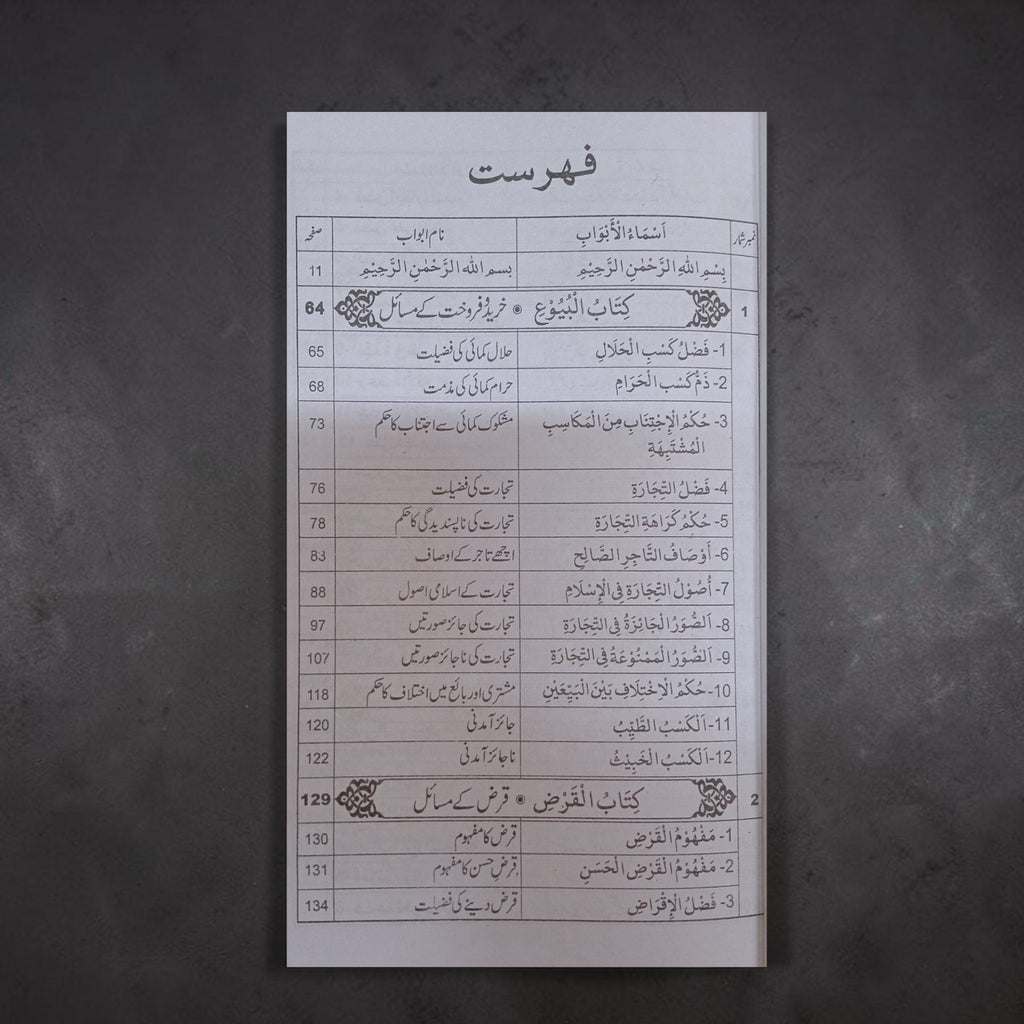 فهرست
نمبر شمار اَسْمَاءُ الْأَبْوَابِ نام ابواب صفحہ
بِسْمِ اللهِ الرَّحْمٰنِ الرَّحِيْمِ بسم الله الرَّحْمٰنِ الرَّحِيْمِ 11
1 كِتَابُ الْبُيُوْعِ خرید و فروخت کے مسائل 64
1- فَضْلُ كَسْبِ الْحَلَالِ حلال کمائی کی فضیلت 65
2- ذَمُّ كَسْبِ الْحَرَامِ حرام کمائی کی مذمت 68
3- حُكْمُ الْإِجْتِنَابِ مِنَ الْمَكَاسِبِ مشکوک کمائی سے اجتناب کا حکم 73
الْمُشْتَبِهَةِ
4- فَضْلُ التِّجَارَةِ تجارت کی فضیلت 76
5- حُكْمُ كَرَاهَةِ التِّجَارَةِ تجارت کی ناپسندیدگی کا حکم 78
6- أَوْصَافُ التَّاجِرِ الصَّالِحِ اچھے تاجر کے اوصاف 83
7- أُصُوْلُ التِّجَارَةِ فِي الْإِسْلَامِ تجارت کے اسلامی اصول 88
8- اَلصُّوَرُ الْجَائِزَةُ فِي التِّجَارَةِ تجارت کی جائز صورتیں 97
9- اَلصُّوَرُ الْمَمْنُوْعَةُ فِي التِّجَارَةِ تجارت کی ناجائز صورتیں 107
10- حُكْمُ الْاِخْتِلَافِ بَيْنَ الْبَيِّعَيْنِ مشتری اور بائع میں اختلاف کا حکم 118
11- اَلْكَسْبُ الطَّيِّبُ جائز آمدنی 120
12- اَلْكَسْبُ الْخَبِيْثُ ناجائز آمدنی 122
2 كِتَابُ الْقَرْضِ قرض کے مسائل 129
1- مَفْهُوْمُ الْقَرْضِ قرض کا مفہوم 130
2- مَفْهُوْمُ الْقَرْضِ الْحَسَنِ قرضِ حسن کا مفہوم 131
3- فَضْلُ الْإِقْرَاضِ قرض دینے کی فضیلت 134